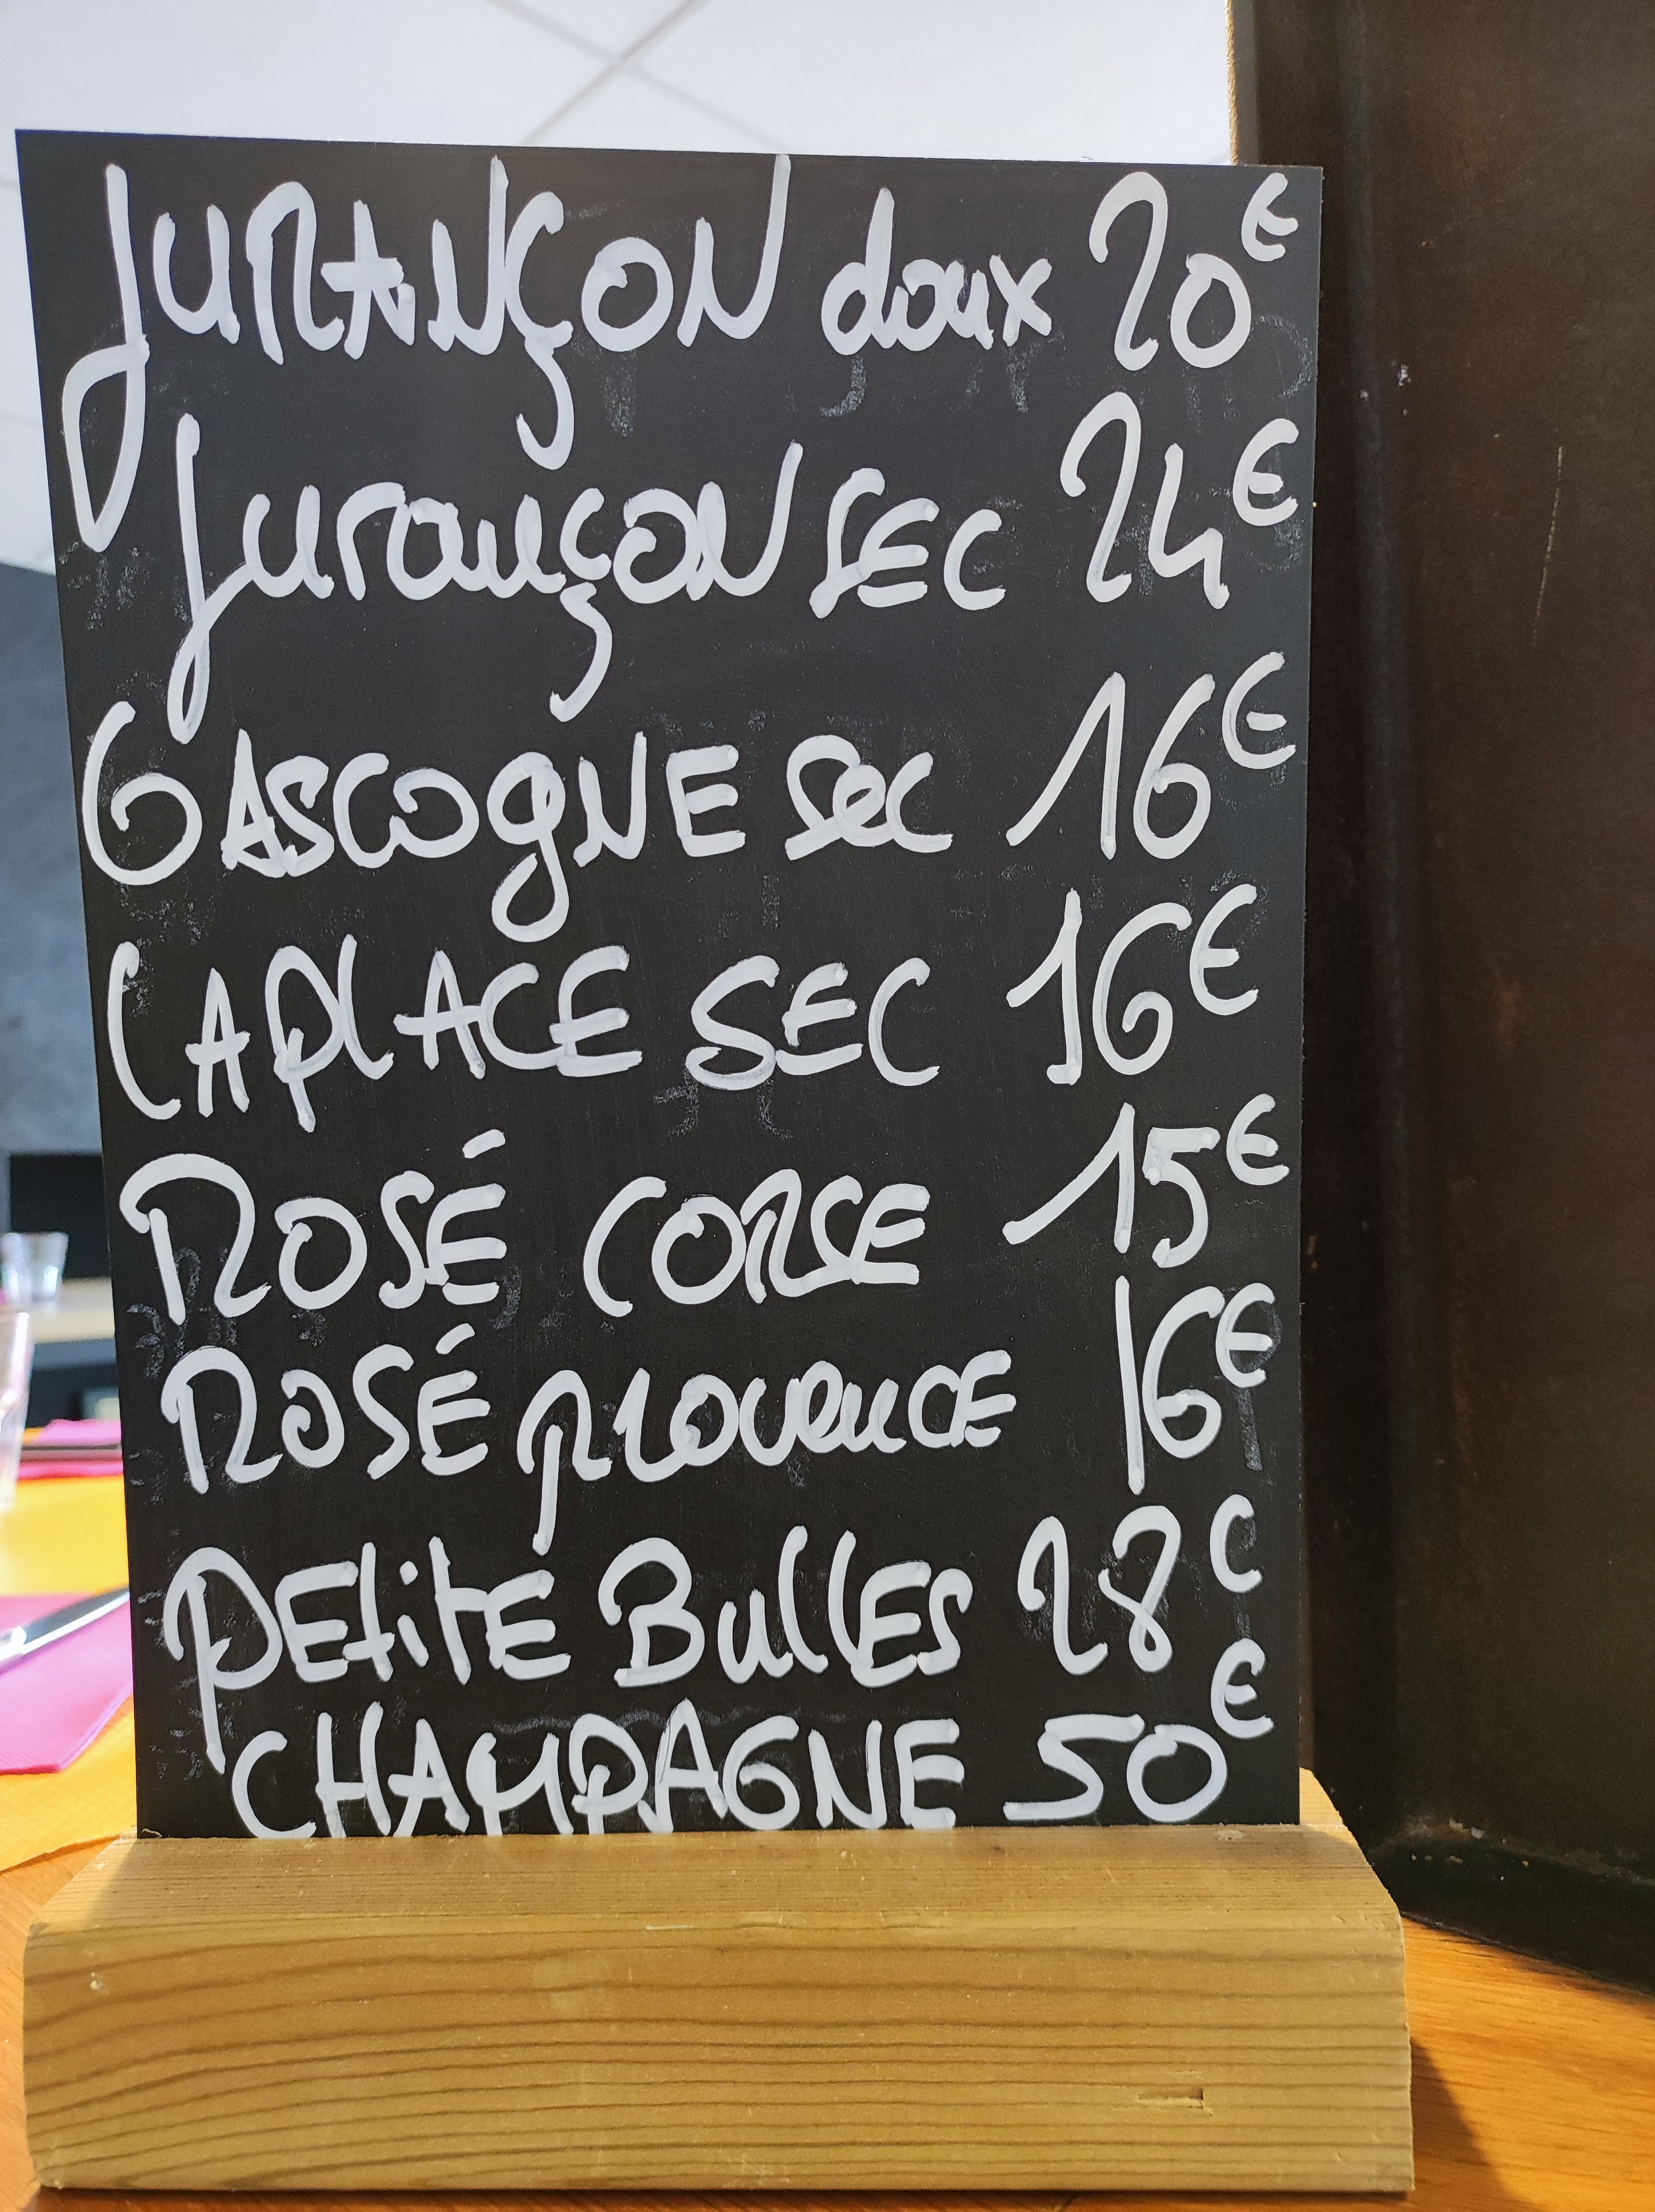 JURANÇON doux 20€
JURANÇON SEC 24€
GASCOGNE sec 16€
LAPLACE SEC 16€
ROSÉ CORSE 15€
ROSÉ provence 16€
PETITE BULLES 28€
CHAMPAGNE 50€